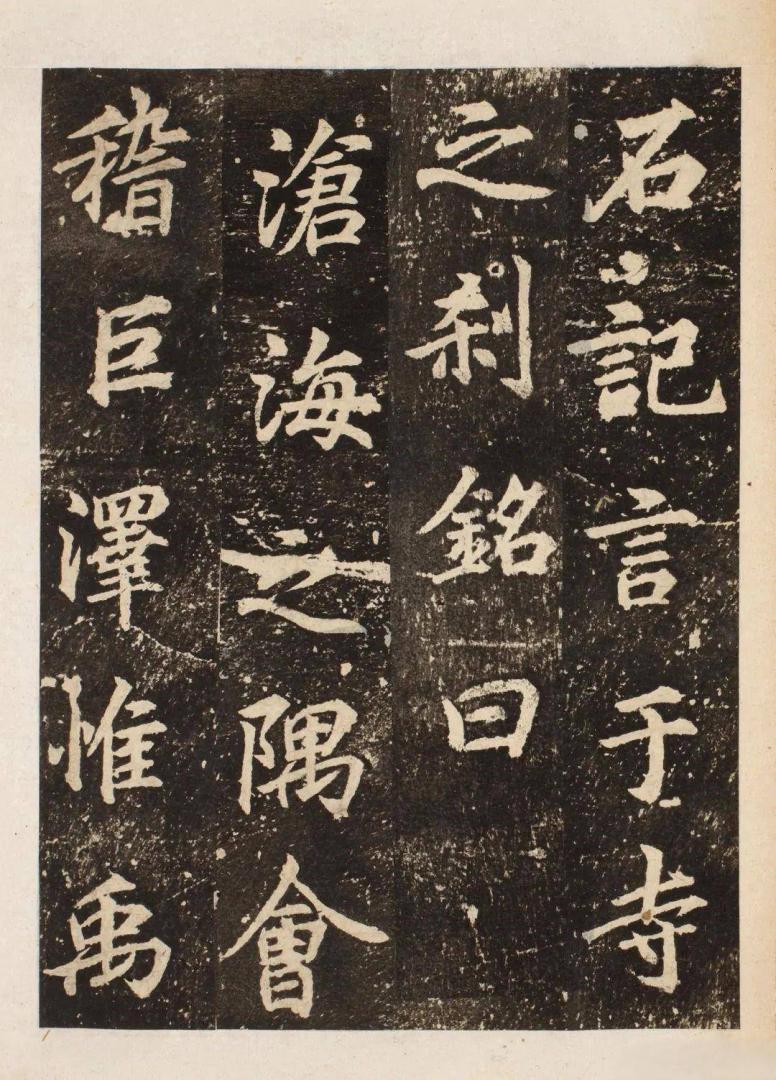 石記言于寺
之刹銘曰
滄海之隅會
稽臣澤惟禹